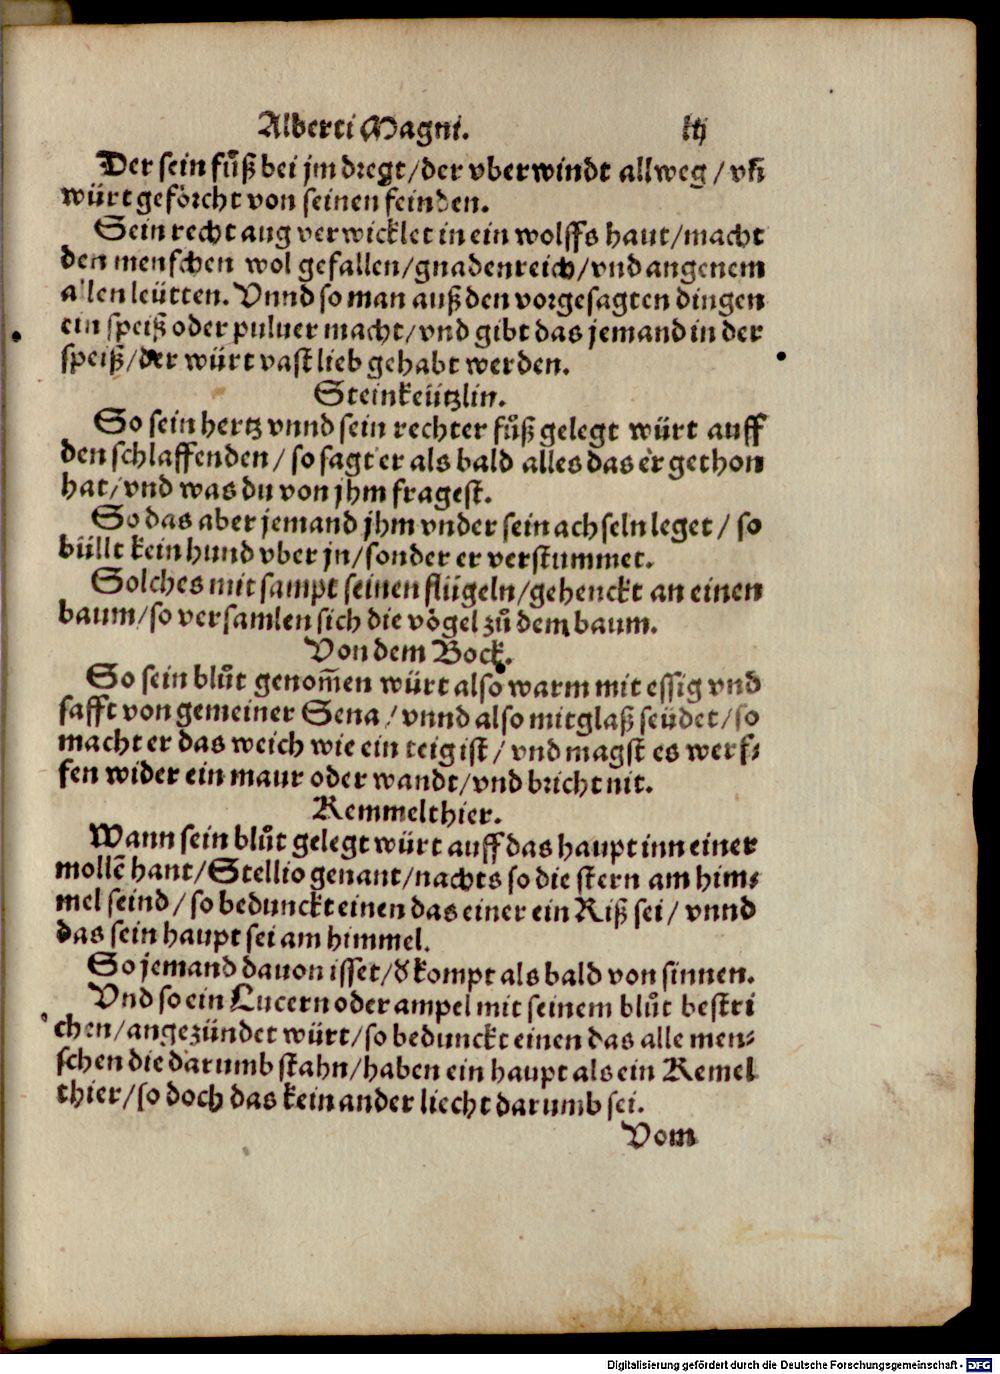 Alberti Magni. lij
Der sein fůß bei jm dregt/der vberwindt allweg/vñ
würt geförcht von seinen feinden.
Sein recht aug verwicklet in ein wolffs haut/macht
den menschen wol gefallen/gnadenreich/vnd angenem
allen leütten. Vnnd so man auß den vorgesagten dingen
ein speiß oder puluer macht/vnd gibt das jemand in der
speiß/der würt vast lieb gehabt werden.
Steinkeützlin.
So sein hertz vnnd sein rechter fůß gelegt würt auff
den schlaffenden/so sagt er als bald alles das er gethon
hat/vnd was du von jhm fragest.
So das aber jemand jhm vnder sein achseln leget/so
büllt kein hund vber jn/sonder er verstummet.
Solches mit sampt seinen flügeln/gehenckt an einen
baum/so versamlen sich die vögel zů dem baum.
Von dem Bock.
So sein blůt genom̃en würt also warm mit essig vnd
safft von gemeiner Sena/vnnd also mit glaß seüdet/so
macht er das weich wie ein teig ist/vnd magst es werf-
fen wider ein maur oder wandt/vnd bricht nit.
Kemmelthier.
Wann sein blůt gelegt würt auff das haupt inn einer
mollẽ hant/Stellio genant/nachts so die stern am him-
mel seind/so bedunckt einen das einer ein Riß sei/vnnd
das sein haupt sei am himmel.
So jemand dauon isset/d' kompt als bald von sinnen.
Vnd so ein Lucern oder ampel mit seinem blůt bestri
chen/angezündet würt/so bedunckt einen das alle men-
schen die darumb stahn/haben ein haupt als ein Kemel
thier/so doch das kein ander liecht darumb sei.
Vom
Digitalisierung gefördert durch die Deutsche Forschungsgemeinschaft - DFG